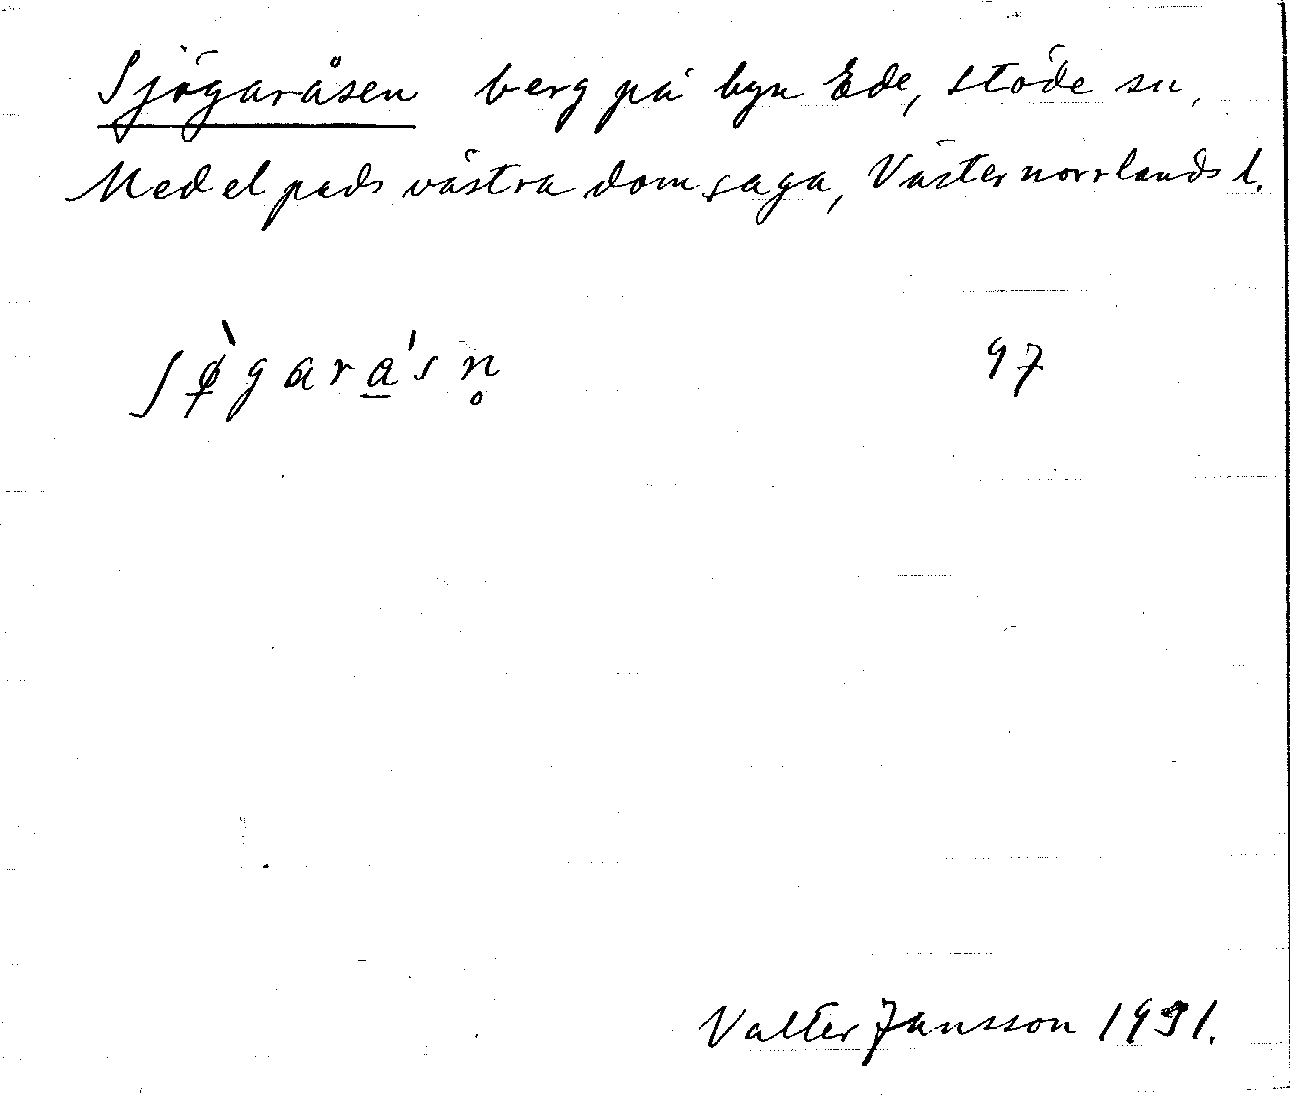 Sjögaråsen berg på byn Ede, Stöde sn,
Medelpads västra domsaga, Västernorrlands l.
ʃø̀gara̲'sn̥ 97
Valter Jansson 1931.